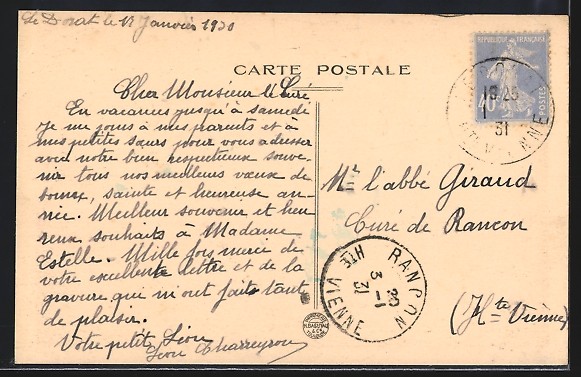 Le Dorat le 1er Janvier 1930
CARTE POSTALE
Cher Monsieur le Curé
En vacances jusqu'à samedi
je me joins à mes parents et à
mes petites sœurs pour vous adresser
avec notre bien respectueux souve-
nir tous nos meilleurs vœux de
bonne, sainte et heureuse an-
née. Meilleur souvenir et heu
reux souhaits à Madame
Estelle. Mille fois merci de
votre excellente lettre et de la
gravure qui m'ont faits tant
de plaisir.
Votre petit Léon
Léon Charreyron
REPUBLIQUE FRANÇAISE
40c
POSTES
31
VIENNE
Mr l'abbé Giraud
Curé de Rancon
(Hte Vienne)
RANCON
20
3 - 1
31
HTE VIENNE